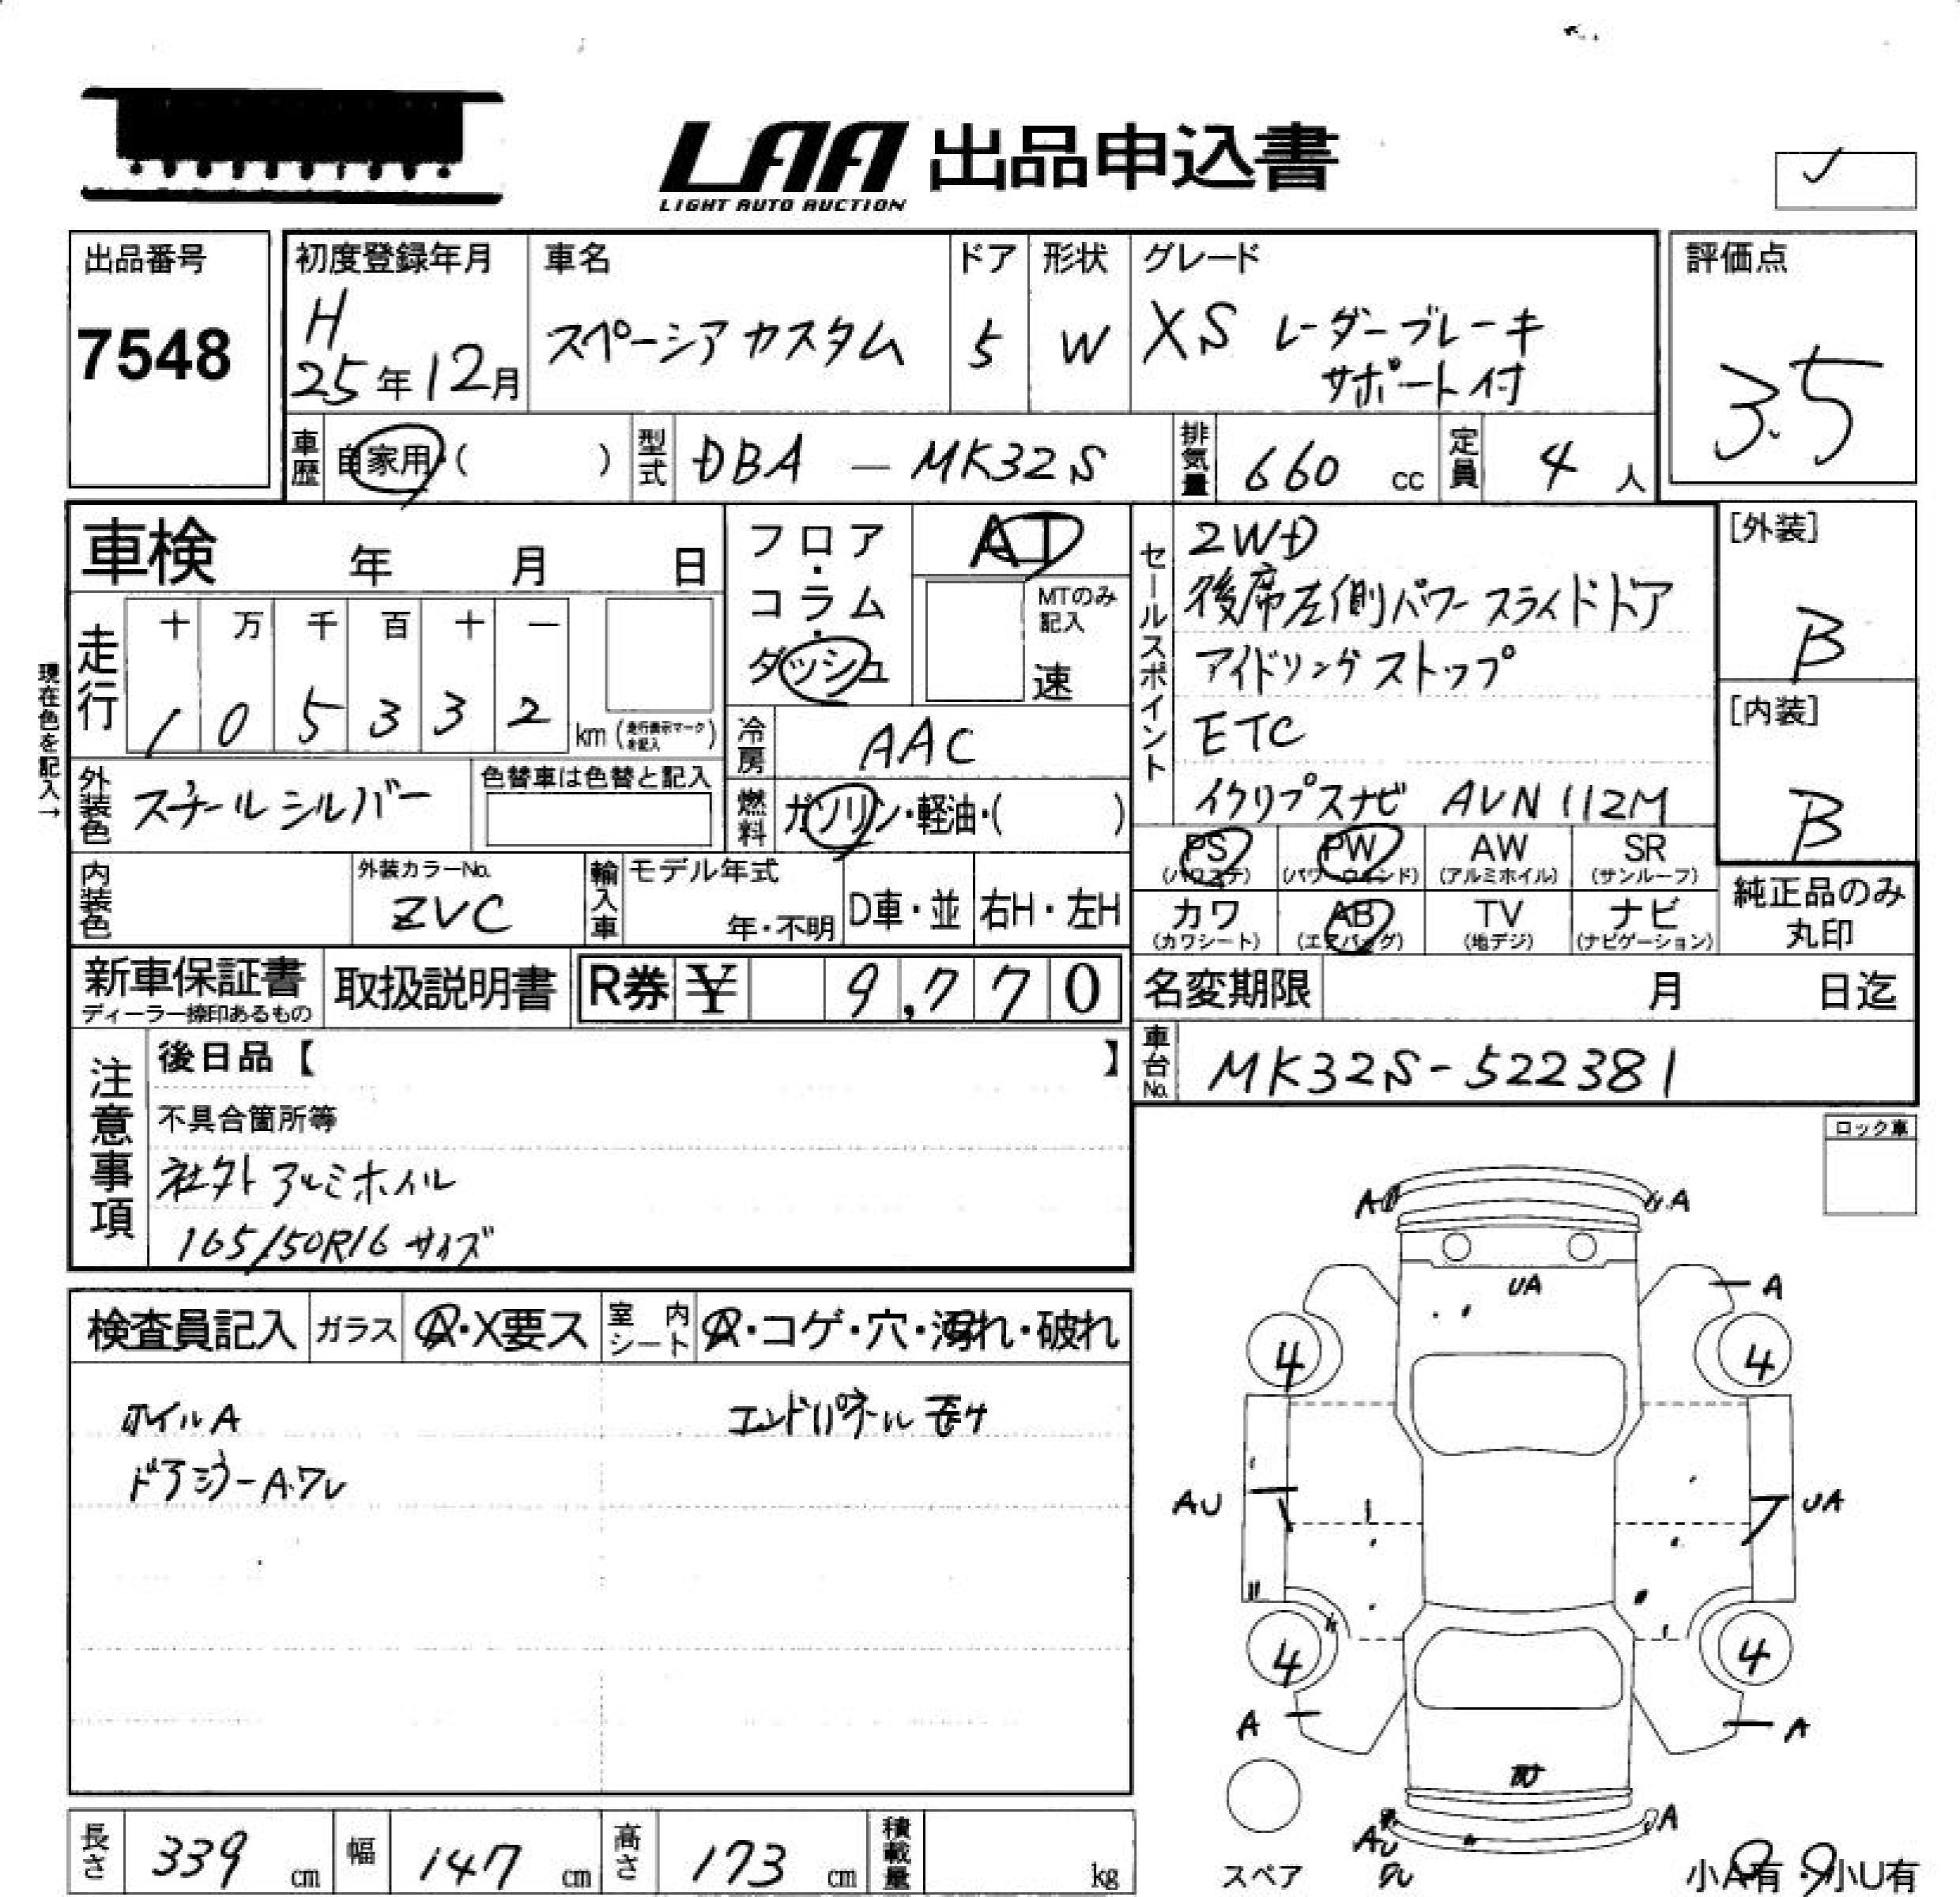 LAA 出品申込書
LIGHT AUTO AUCTION
出品番号
7548
初度登録年月
H
25年12月
車名
スペーシア カスタム
ドア
5
形状
W
グレード
XS レーダーブレーキ
サポート付
評価点
3.5
車歴 自家用・( )
型式 DBA - MK32S
排気量 660 cc
定員 4 人
車検 年 月 日
走行
十 万 千 百 十 一
1 0 5 3 3 2 km (走行表示マークを記入)
現在色を記入→
外装色 スチールシルバー
色替車は色替と記入
内装色
外装カラーNo.
ZVC
フロア・コラム・ダッシュ
AT
MTのみ記入
速
冷房 AAC
燃料 ガソリン・軽油・( )
輸入車
モデル年式
年・不明
D車・並
右H・左H
セールスポイント
2WD
後席左側パワースライドドア
アイドリングストップ
ETC
イクリプスナビ AVN112M
[外装]
B
[内装]
B
PS (パワステ)
PW (パワーウインド)
AW (アルミホイル)
SR (サンルーフ)
カワ (カワシート)
AB (エアバッグ)
TV (地デジ)
ナビ (ナビゲーション)
純正品のみ
丸印
新車保証書
ディーラー捺印あるもの
取扱説明書
R券 ¥ 9,770
名変期限 月 日迄
車台No. MK32S-522381
注意事項
後日品【 】
不具合箇所等
社外アルミホイル
165/50R16 サイズ
ロック車
検査員記入
ガラス A・X要ス
室内シート A・コゲ・穴・汚れ・破れ
ホイルA
エンドパネル
A A
UA
A
4 4
AU
UA
4 4
A A
AU
A
スペア
小A有・小U有
長さ 339 cm
幅 147 cm
高さ 173 cm
積載量 kg